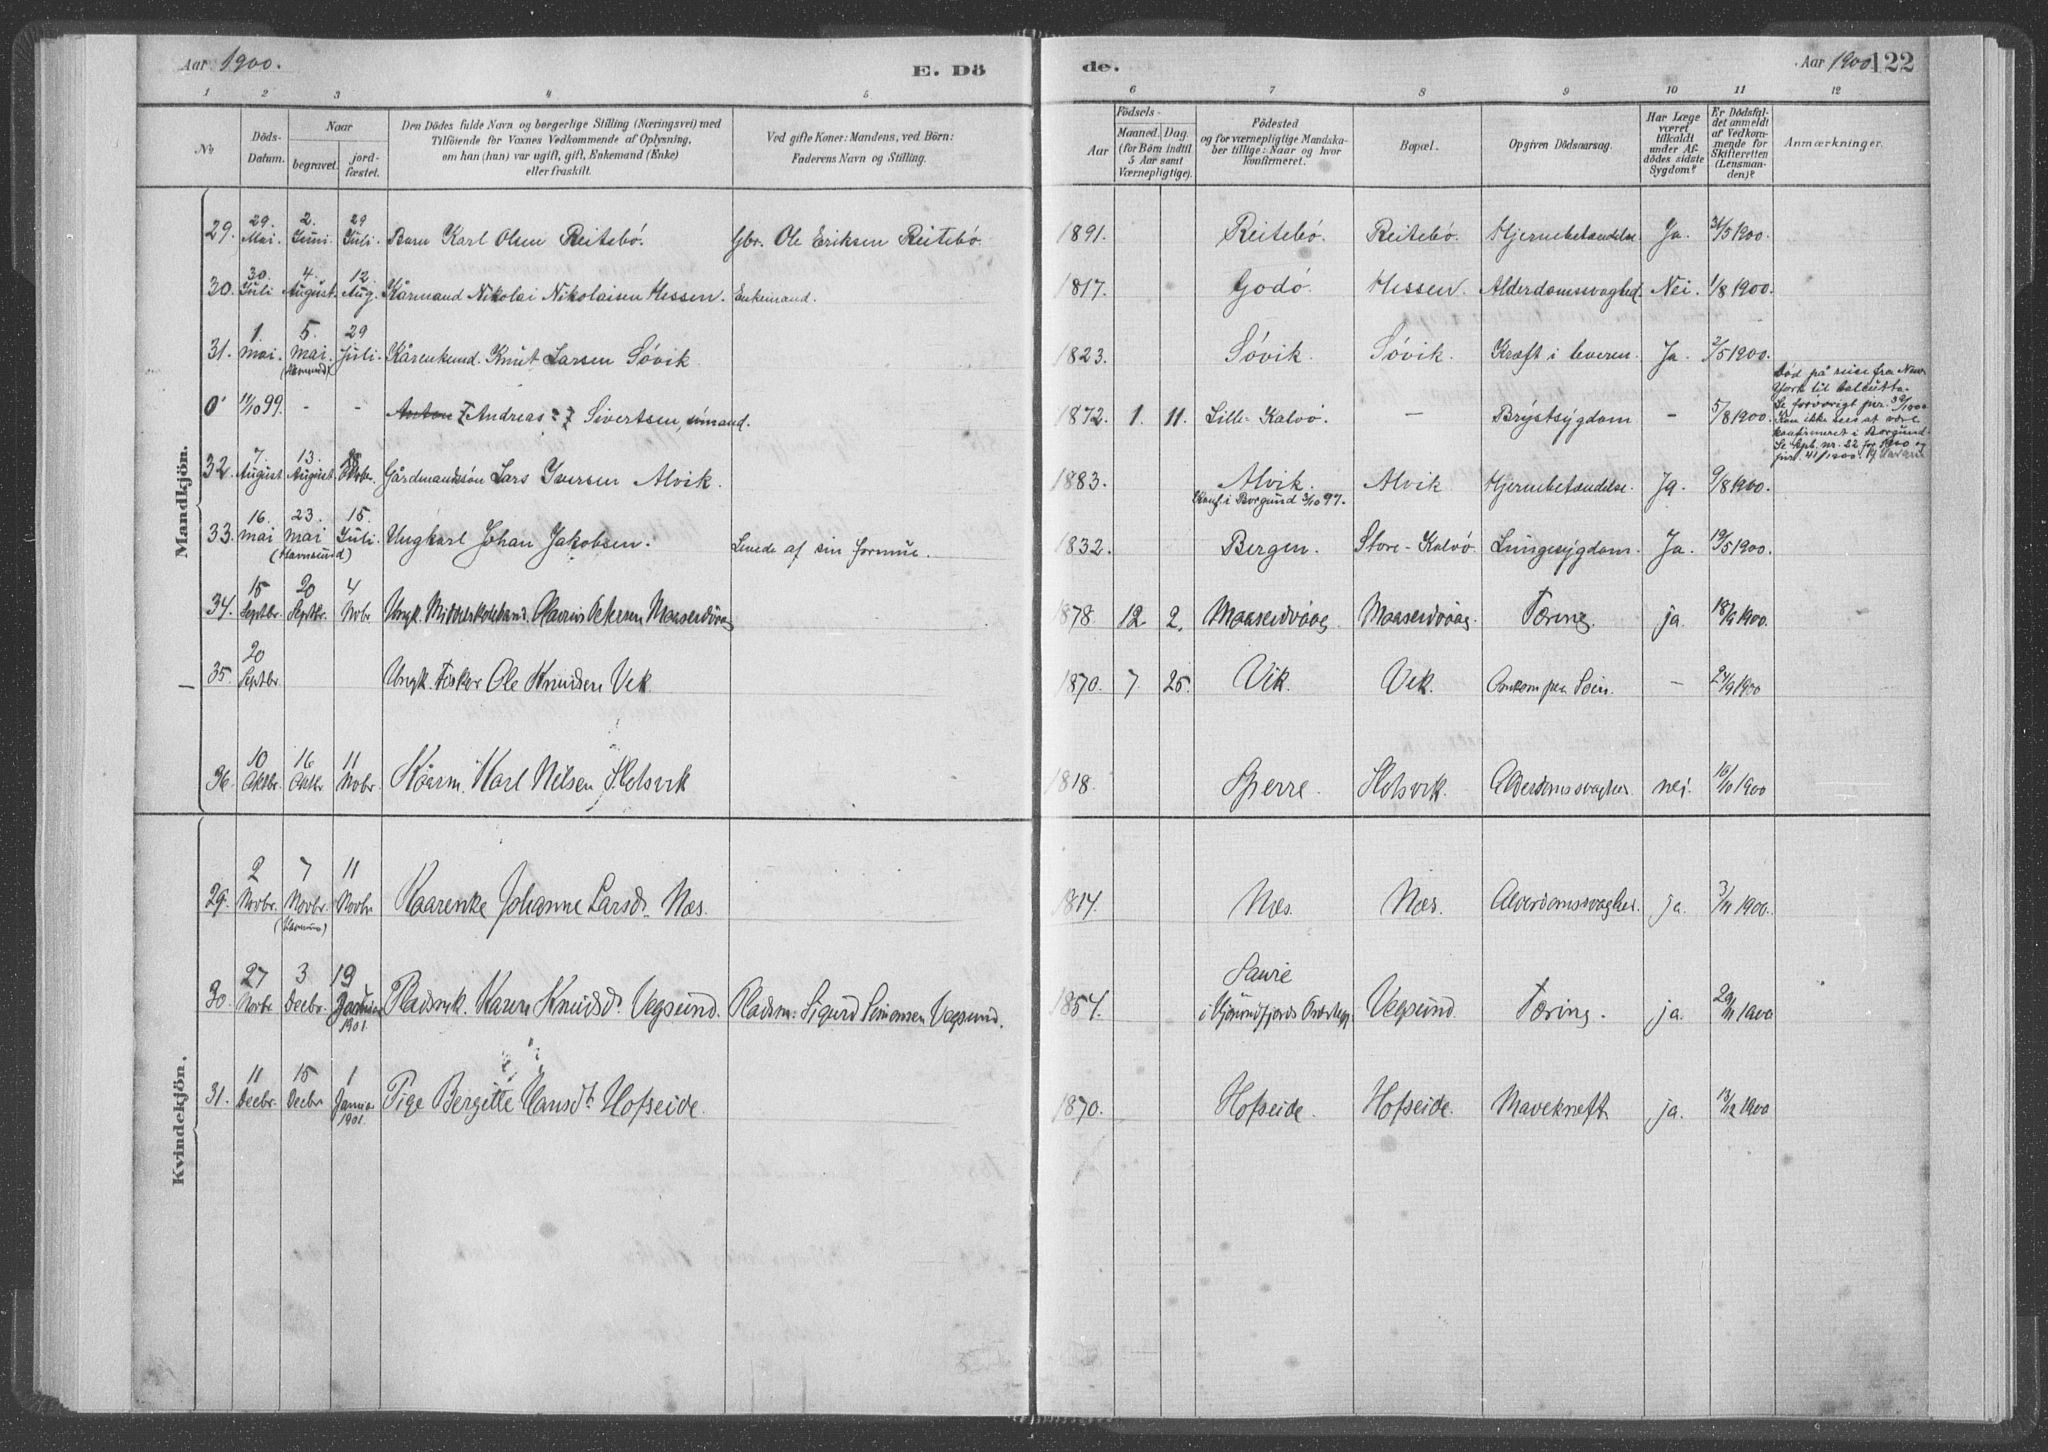 Aar 1900.
E. Dö
de.
Aar 1900
122
1 2 3 4 5
6 7 8 9 10 11 12
No
Döds-
Datum.
Naar
begravet.
jord-
fæstet.
Den Dödes fulde Navn og borgerlige Stilling (Næringsvei) med
Tilföiende for Voxnes Vedkommende af Oplysning,
om han (hun) var ugift, gift, Enkemand (Enke)
eller fraskilt.
Ved gifte Koner: Mandens, ved Börn:
Faderens Navn og Stilling.
Födsels-
Aar
Maaned.
Dag.
(for Börn indtil
5 Aar samt
Værnepligtige).
Födested
og for værnepligtige Mandska-
ber tillige: Naar og hvor
konfirmeret.
Bopæl.
Opgiven Dödsaarsag.
Har Læge
været
tilkaldt
under Af-
dödes sidste
Sygdom?
Er Dödsfal-
det anmeldt
af Vedkom-
mende for
Skifteretten
(Lensman-
den)?
Anmærkninger.
Mandkjön.
29. 29. Mai. 2. Juni. 29 Juli. Barn Karl Olsen Reitebö. Gbr. Ole Eriksen Reitebö. 1891. Reitebö. Reitebö. Hjernebetændelse. Ja. 31/5 1900.
30. 30. Juli 4. August. 12 Aug. Kårmand Nikolai Nikolaisen Hessen. Enkemand. 1817. Godö. Hessen. Alderdomssvaghed. Nei. 1/8 1900.
31. 1. Mai. 5. Mai. 29 Juli. Kårenkemd. Knut Larsen Sövik 1823. Sövik. Sövik. Kræft i leveren. Ja. 2/5 1900.
0 11/10 99. - - Anton Andreas Sivertsen, sömand. 1872. 1. 11. Lille-Kalvö. - Brystsygdom - 5/8 1900.
Död på reise fra New
York til Calcutta.
Se forövrigt jnr. 39/1900
Kan ikke sees at være
konfirmeret i Borgund.
32. 7. August 13. August Oktobr. Gårdmandssön Lars Iversen Alvik. 1883. Alvik. Alvik Hjernebetændelse. Ja. 9/8 1900.
Konf. i Borgund 3/10 97.
33. 16. Mai 23. Mai 15. Juli. Ungkarl Johan Jakobsen. Levede af sin formue. 1832. Bergen. Store-Kalvö. Lungesygdom. Ja. 19/5 1900.
(Havnsund)
34. 15 Septbr. 20 Septbr. 4 Novbr. 1878. 12. 2. Tæring. ja. 18/9 1900.
35. 20 Septbr. Ungk. Fisker Ole Knudsen Vik. 1870. 7 25. Vik. Vik. Omkom paa Söen. - 24/9 1900
36. 10 Oktbr. 16 Oktbr 11 Novbr. Kårm. Karl Nilsen Slotsvik 1818. Sperre. Slotsvik. Alderdomssvaghed. nei. 16/10 1900
Kvindekjön.
29. 2 Novbr. 7 Novbr. 11 Novbr Kaarenke Johanne Larsdr. Næs. 1814. Næs. Næs. Alderdomssvaghed. ja. 3/11 1900.
30. 27 Novbr. 3 Decbr. 19 Januar 1901. Pladsmk. Karen Knudsdr. Vegsund. Pladsm: Sigurd Simonsen Vegsund. 1854. Vegsund. Tæring. ja. 29/11 1900
31. 11 Decbr. 15 Decbr 1 Januar 1901. Pige Bergitte Hansdtr. Hofseide. 1870. Hofseide. Hofseide. Mavekræft ja. 13/12 1900